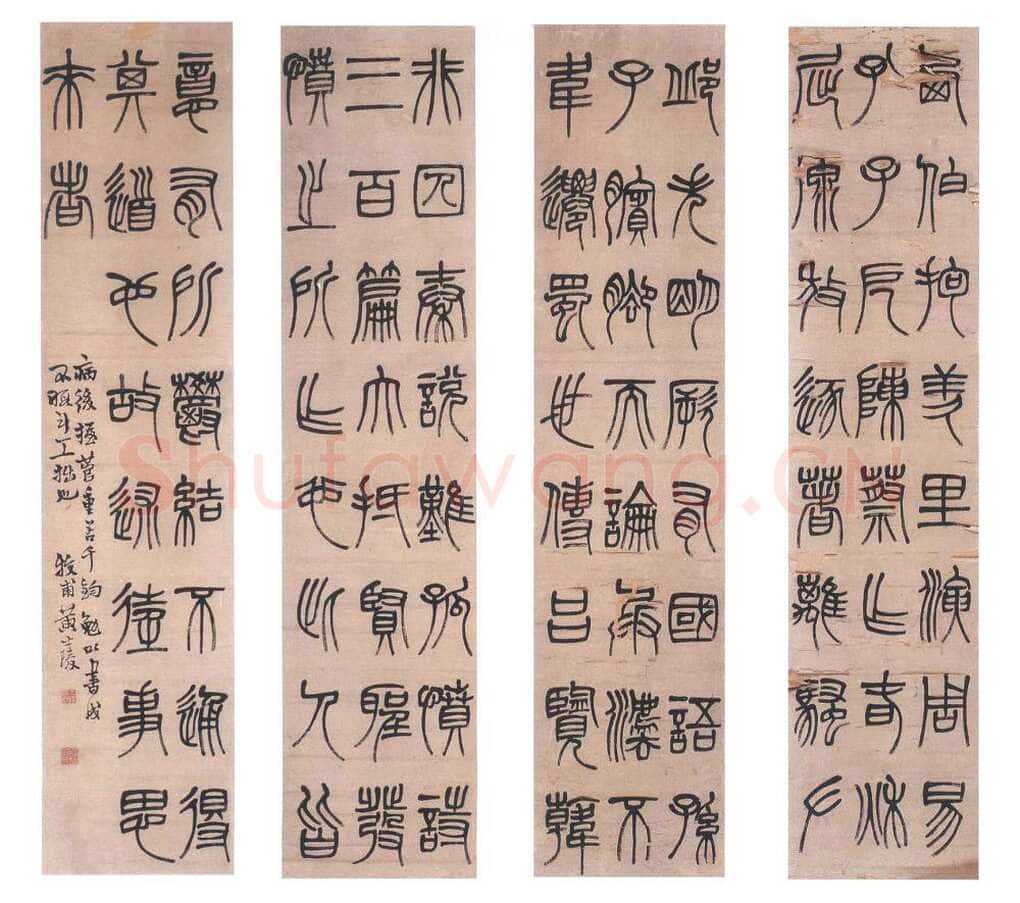 西伯拘羑里演周易
孔子戹陳蔡作春秌
屈原放逐著離騷左
邱失明厥有國語孫
子臏腳而論兵法不
韋遷蜀世傳呂覽韓
非囚秦說難孤憤詩
三百篇大抵賢聖發
憤之所作也此人皆
意有所鬱結不通得
其道也故述往事思
來者
病後搦管重若千鈞勉以書成
不暇計工拙也 牧甫黃士陵
Shufawang.CN